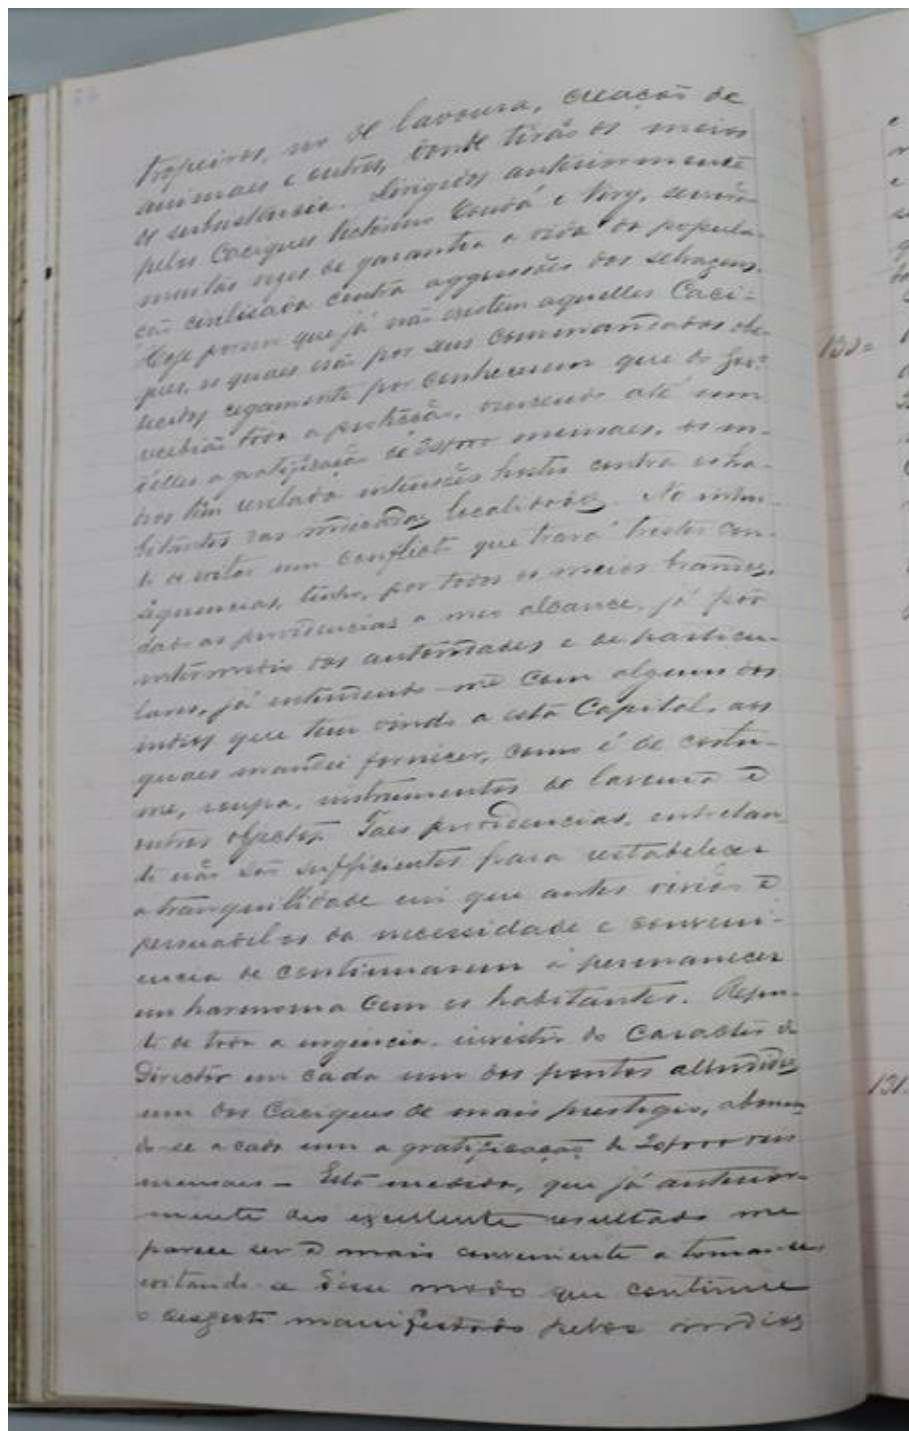 tropeiros, no de lavoura, creação de
animaes e outros, donde tirão os meios
de subsistencia. Dirigidos anteriormente
pelos Caciques Victorino Condá e Viry, servirão
muitas vezes de garantia a vida da popula-
ção civilisada contra aggressões dos selvagens.
Hoje porem que já não existem aquelles Caci-
ques, os quaes erão por seus commandados obe-
decidos cegamente por conhecerem que do Gov.º
recebião toda a protecção, vencendo até um
delles a gratificação de mensaes, os in-
dios têm revelado intenções hostis contra os ha-
bitantes das indicadas localidades. No intui-
to de evitar um conflicto que trará tristes con-
sequencias, tenho, por todos os meios brandos,
dado as providencias a meu alcance, já por
intermedio das autoridades e de particu-
lares, já entendendo-me com alguns dos
indios que tem vindo a esta Capital, aos
quaes mandei fornecer, como é de costu-
me, roupa, instrumentos de lavoura e
outros objectos. Taes providencias, entretan-
to não são sufficientes para restabelecer
a tranquilidade em que antes vivião e
persuadil-os da necessidade e conveni-
encia de continuarem a permanecer
em harmonia com os habitantes. Reputo
de toda a urgencia, investir do caracter de
Director em cada um dos pontos alludidos
um dos Caciques de mais prestigio, abonan-
do-se a cada um a gratificação de reis
mensaes — Esta medida, que já anterior-
mente deu excellente resultado me
parece ser a mais conveniente a tomar-se,
evitando-se desse modo que continue
o desgosto manifestado pelos indios
130=
131